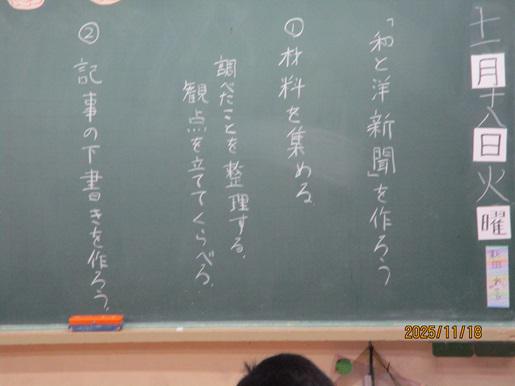 十一月十八日火曜
「和と洋新聞」を作ろう
① 材料を集める
調べたことを整理する。
観点を立ててくらべる。
② 記事の下書きを作ろう。
2025/11/18